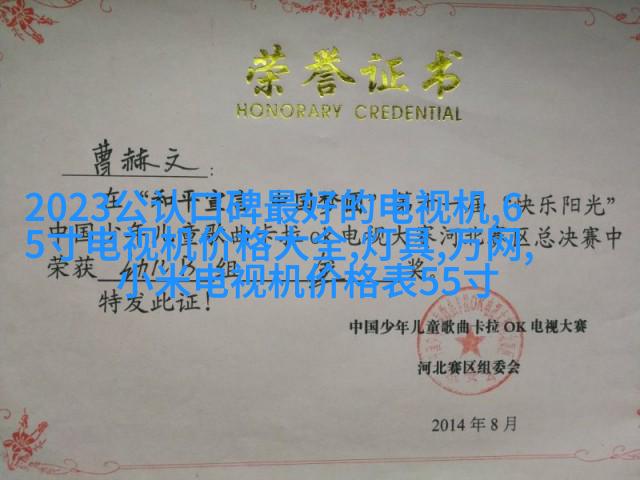 荣誉证书
HONORARY CREDENTIAL
曹赫文:
在“和平宣言
快乐阳光”
2023公认口碑最好的电视机,6
5寸电视机价格大全,灯具,万网,
小米电视机价格表55寸
中国少年儿童歌曲卡拉OK电视大赛河北赛区总决赛中
荣获 幼儿B 组 奖
特发此证!
中国少年儿童歌曲卡拉OK电视大赛
河北赛区组委会
2014年8月